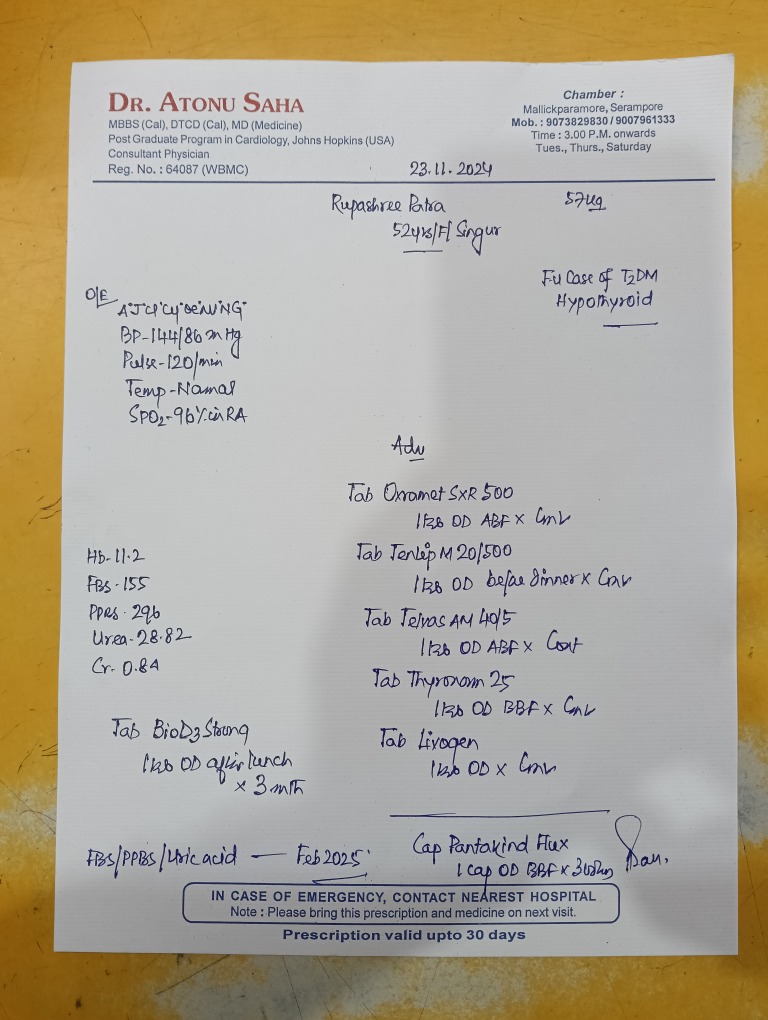 DR. ATONU SAHA
MBBS (Cal), DTCD (Cal), MD (Medicine)
Post Graduate Program in Cardiology, Johns Hopkins (USA)
Consultant Physician
Reg. No. : 64087 (WBMC)
Chamber :
Mallickparamore, Serampore
Mob. : 9073829830 / 9007961333
Time : 3.00 P.M. onwards
Tues., Thurs., Saturday
23.11.2024
Rupashree Patra 57kg
52yrs/F/ Singur
FU Case of T2DM
Hypothyroid
O/E
BP-144/86 mmHg
Pulse-120/min
Temp-Normal
SPO2-96% in RA
Adv
Tab Oxramet SXR 500
1 tab OD ABF x Cont
Tab Tenlip M 20/500
1 tab OD before dinner x Cont
Tab Telvas AM 40/5
1 tab OD ABF x Cont
Tab Thyronorm 25
1 tab OD BBF x Cont
Tab Livogen
1 tab OD x Cont
Hb-11.2
FBS-155
PPBS-296
Urea-28.82
Cr-0.84
Tab BioD3 Strong
1 tab OD after lunch
x 3 mth
Cap Pantakind Flux
1 cap OD BBF x
FBS/PPBS/Uric acid — Feb 2025
IN CASE OF EMERGENCY, CONTACT NEAREST HOSPITAL
Note : Please bring this prescription and medicine on next visit.
Prescription valid upto 30 days